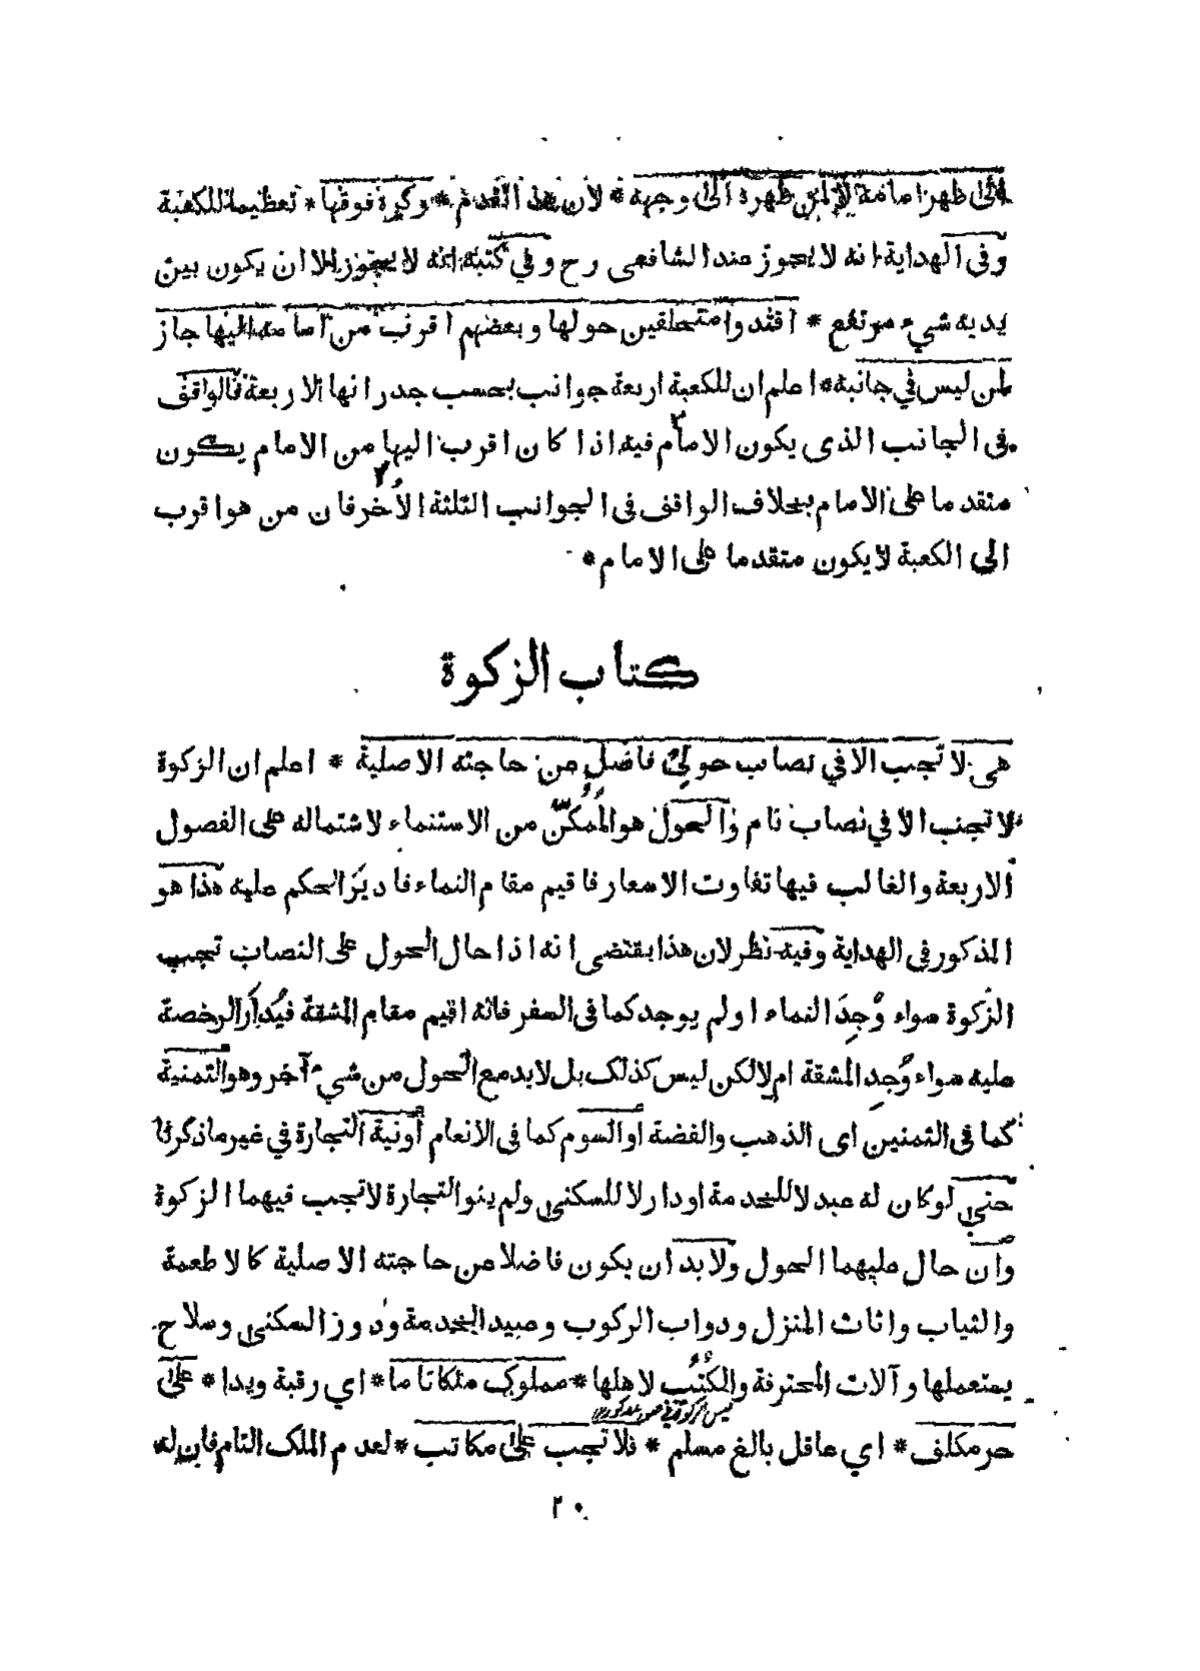 الى ظهر امامه لا لمن ظهره الى وجهه * لان هذا تقدم * وكره فوقها * تعظيما للكعبة
وفى الهداية انه لا يجوز عند الشافعى رح وفي كتبه انه لا يجوز الا ان يكون بين
يديه شيء مرتفع * اقتدوا متحلقين حولها وبعضهم اقرب من امامه اليها جاز
لمن ليس في جانبه * اعلم ان للكعبة اربعة جوانب بحسب جدرانها الاربعة فالواقف
فى الجانب الذى يكون الامام فيه اذا كان اقرب اليها من الامام يكون
متقدما على الامام بخلاف الواقف فى الجوانب الثلثة الأخر فان من هو اقرب
الى الكعبة لا يكون متقدما على الامام *
كتاب الزكوة
هى لا تجب الا في نصاب حولىّ فاضلٍ من حاجته الاصلية * اعلم ان الزكوة
لا تجب الا في نصاب نام والحول هو المُمكِّن من الاستنماء لاشتماله على الفصول
الاربعة والغالب فيها تفاوت الاسعار فاقيم مقام النماء فاديرَ الحكم عليه هذا هو
المذكور في الهداية وفيه نظر لان هذا يقتضى انه اذا حال الحول على النصاب تجب
الزكوة سواء وُجِدَ النماء او لم يوجد كما فى السفر فانه اقيم مقام المشقة فيُدارُ الرخصة
عليه سواء وُجِد المشقة ام لا لكن ليس كذلك بل لابد مع الحول من شيء آخر وهو الثمنية
كما فى الثمنين اى الذهب والفضة او السوم كما فى الانعام أو نية التجارة في غير ما ذكرنا
حتى لو كان له عبد لا للخدمة او دار لا للسكنى ولم ينو التجارة لا تجب فيهما الزكوة
وان حال عليهما الحول ولابد ان يكون فاضلا من حاجته الاصلية كالاطعمة
والثياب واثاث المنزل ودواب الركوب وعبيد الخدمة ودور السكنى وسلاح
يستعملها وآلات المحترفة والكُتُب لاهلها * مملوك ملكا تاما * اي رقبة ويدا * على
حر مكلف * اي عاقل بالغ مسلم * فلا تجب على مكاتب * لعدم الملك التام فان له
٢٠